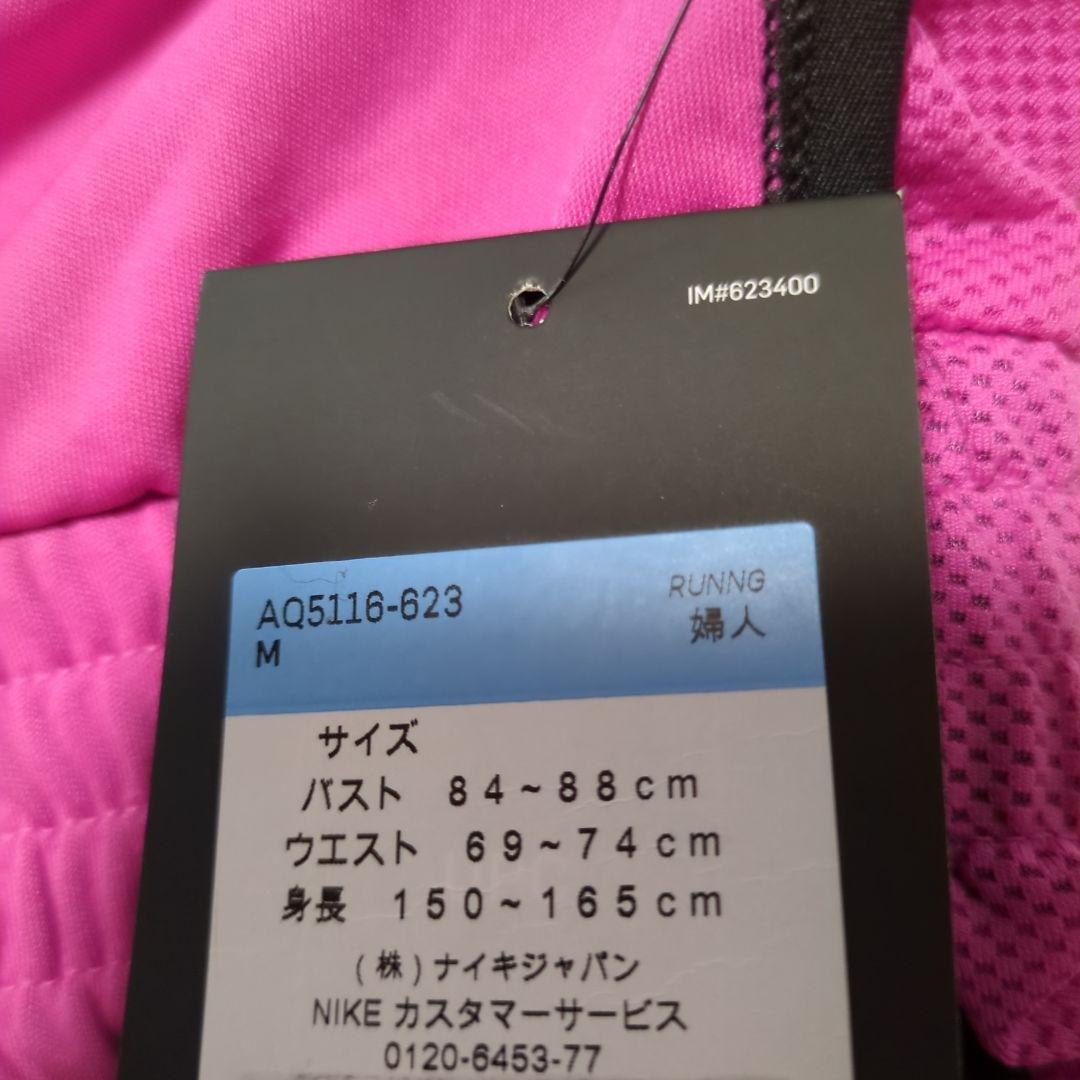 IM#623400
AQ5116-623
RUNNG
M
婦人
サイズ
バスト 84~88cm
ウエスト 69~74cm
身長 150~165cm
(株)ナイキジャパン
NIKE カスタマーサービス
0120-6453-77